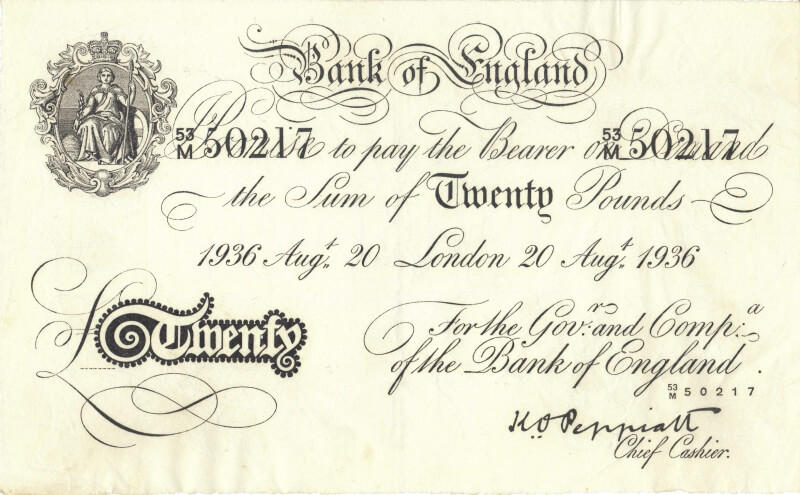 Bank of England
53
M 50217 53
M 50217
I Promise to pay the Bearer on Demand
the Sum of Twenty Pounds
1936 Augt. 20 London 20 Augt. 1936
£Twenty
For the Govr. and Compa.
of the Bank of England.
53
M 50217
K O Peppiatt
Chief Cashier.